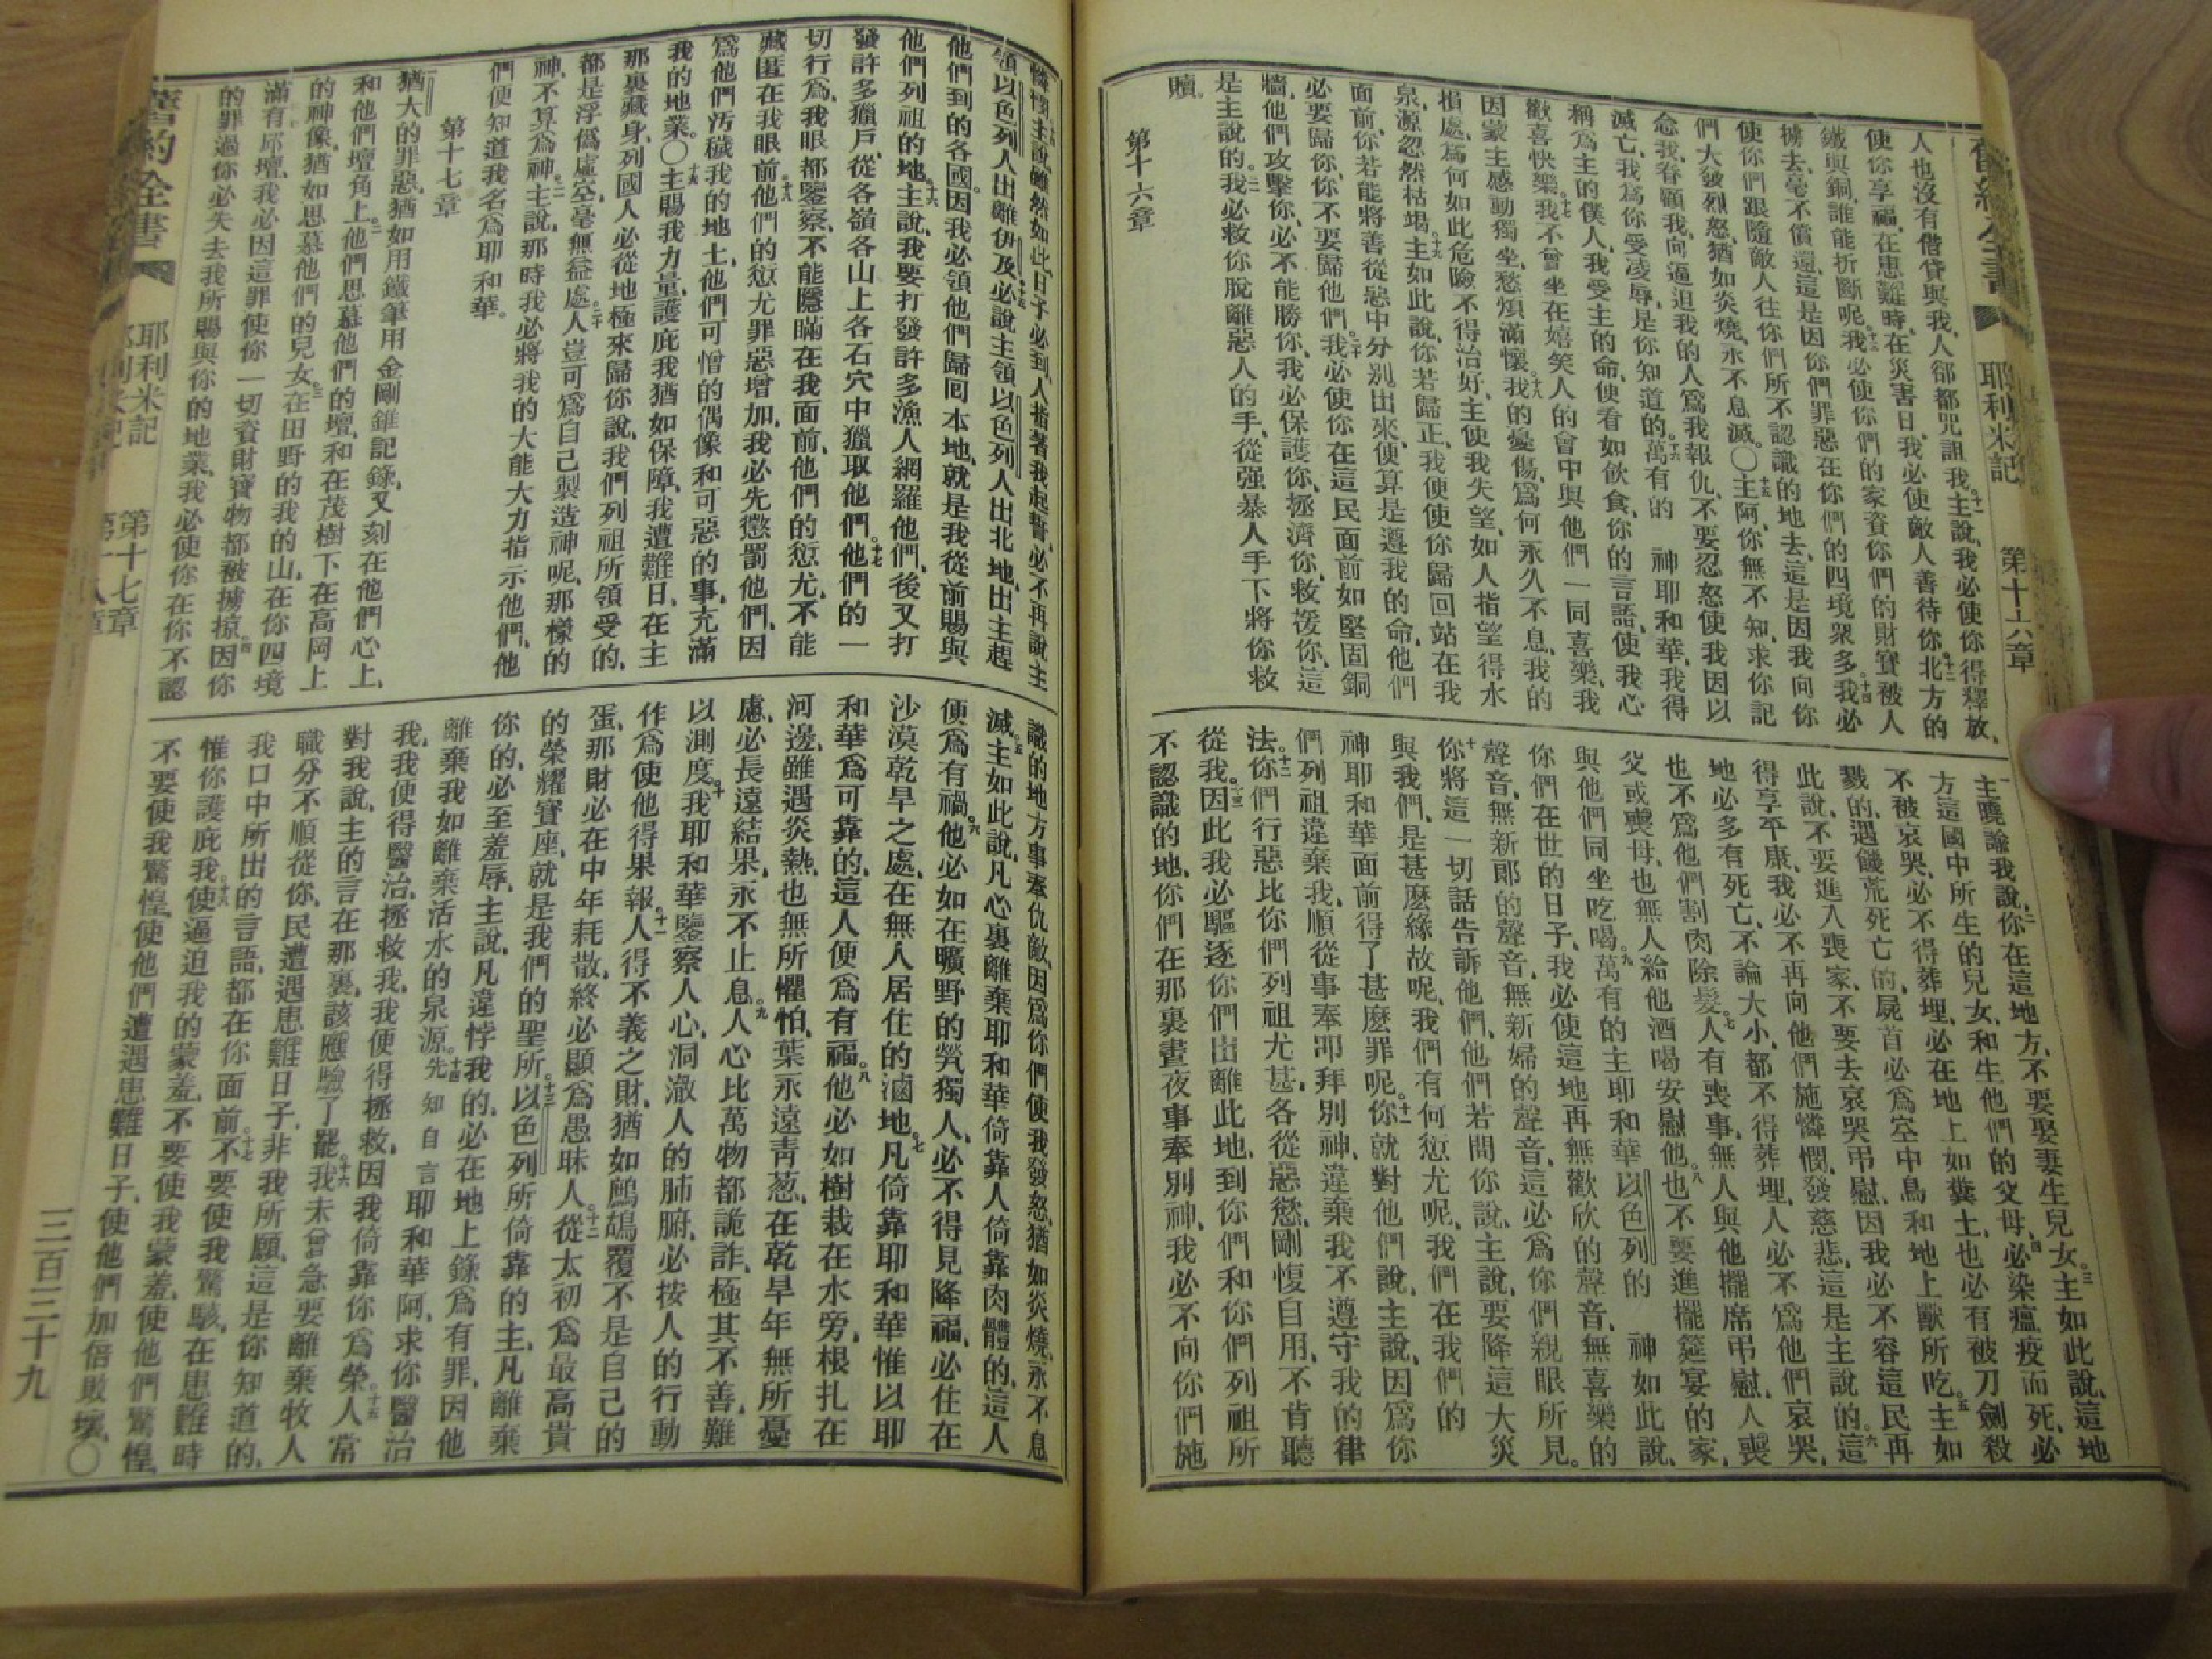 舊約全書
耶利米記
第十六章
人也沒有借貸與我、人卻都咒詛我。十一主說、我必使你得釋放、
使你享福、在患難時、在災害日、我必使敵人善待你。十二北方的
鐵與銅、誰能折斷呢。十三我必使你們的家資、你們的財寶、被人
擄去、毫不償還、這是因你們罪惡、在你們的四境衆多。十四我必
使你們跟隨敵人往你們所不認識的地去、這是因我向你
們大發烈怒、猶如炎燒、永不息滅。〇十五主阿、你無不知、求你記
念我、眷顧我、向逼迫我的人爲我報仇、不要忍怒使我因以
滅亡、我爲你受凌辱、是你知道的。十六萬有的 神耶和華、我得
稱爲主的僕人、我受主的命、便看如飲食、你的言語、使我心
歡喜快樂。十七我不曾坐在嬉笑人的會中與他們一同喜樂、我
因蒙主感動獨坐、愁煩滿懷。十八我的憂傷、爲何永久不息、我的
損處、爲何如此危險不得治好、主使我失望、如人指望得水
泉、源忽然枯竭。十九主如此說、你若歸正、我便使你歸回站在我
面前、你若能將善從惡中分別出來、便算是遵我的命、他們
必要歸你、你不要歸他們。二十我必使你在這民面前如堅固銅
牆、他們攻擊你、必不能勝你、我必保護你、拯濟你、救援你、這
是主說的。二一我必救你脫離惡人的手、從强暴人手下將你救
贖。
第十六章
一主曉諭我說、二你在這地方、不要娶妻生兒女。三主如此說、這地
方這國中所生的兒女、和生他們的父母、四必染瘟疫而死、必
不被哀哭、必不得葬埋、必在地上如糞土、也必有被刀劍殺
戮的、遇饑荒死亡的、屍首必爲空中鳥和地上獸所吃。五主如
此說、不要進入喪家、不要去哀哭弔慰、因我必不容這民再
得享平康、我必不再向他們施憐憫、發慈悲、這是主說的。六這
地必多有死亡、不論大小、都不得葬埋、人必不爲他們哀哭、
也不爲他們割肉除髮。七人有喪事、無人與他擺席弔慰、人喪
父或喪母、也無人給他酒喝安慰他。八也不要進擺筵宴的家、
與他們同坐吃喝。九萬有的主耶和華以色列的 神如此說、
你們在世的日子、我必使這地再無歡欣的聲音、無喜樂的
聲音、無新郞的聲音、無新婦的聲音、這必爲你們親眼所見。
十你將這一切話告訴他們、他們若問你說、主說、要降這大災
與我們、是甚麼緣故呢、我們有何愆尤呢、我們在我們的
神耶和華面前得了甚麼罪呢。十一你就對他們說、主說、因爲你
們列祖違棄我、順從事奉叩拜別神、違棄我不遵守我的律
法。十二你們行惡比你們列祖尤甚、各從惡慾、剛愎自用、不肯聽
從我。十三因此我必驅逐你們出離此地、到你們和你們列祖所
不認識的地、你們在那裏晝夜事奉別神、我必不向你們施
憐憫。十四主說、雖然如此、日子必到、人指著我起誓、必不再說、主
領以色列人出離伊及、十五必說、主領以色列人出北地、出主趕
他們到的各國、因我必領他們歸囘本地、就是我從前賜與
他們列祖的地。十六主說、我要打發許多漁人網羅他們、後又打
發許多獵戶、從各嶺各山上各石穴中獵取他們。十七他們的一
切行爲、我眼都鑒察、不能隱瞞在我面前、他們的愆尤、不能
藏匿在我眼前。十八他們的愆尤罪惡增加、我必先懲罰他們、因
爲他們汚穢我的地土、他們可憎的偶像和可惡的事、充滿
我的地業。〇十九主賜我力量、護庇我猶如保障、我遭難日、在主
那裏藏身、列國人必從地極來歸你、說、我們列祖所領受的、
都是浮僞虛空、毫無益處。二十人豈可爲自己製造神呢、那樣的
神、不算爲神。二一主說、那時我必將我的大能大力指示他們、他
們便知道我名爲耶和華。
第十七章
猶大的罪惡、猶如用鐵筆用金剛錐記錄、又刻在他們心上、
和他們壇角上。二他們思慕他們的壇、和在茂樹下在高岡上
的神像、猶如思慕他們的兒女。三在田野的我的山、在你四境
滿有邱壇、我必因這罪使你一切資財寶物都被擄掠。四因你
的罪過你必失去我所賜與你的地業、我必使你在你不認
識的地方事奉仇敵、因爲你們使我發怒、猶如炎燒、永不息
滅。五主如此說、凡心裏離棄耶和華倚靠人倚靠肉體的、這人
便爲有禍。六他必如在曠野的煢獨人、必不得見降福、必住在
沙漠乾旱之處、在無人居住的滷地。七凡倚靠耶和華惟以耶
和華爲可靠的、這人便爲有福。八他必如樹栽在水旁、根扎在
河邊、雖遇炎熱、也無所懼怕、葉永遠靑葱、在乾旱年無所憂
慮、必長遠結果、永不止息。九人心比萬物都詭詐、極其不善、難
以測度。十我耶和華鑒察人心、洞澈人的肺腑、必按人的行動
作爲使他得果報。十一人得不義之財、猶如鷓鴣覆不是自己的
蛋、那財必在中年耗散、終必顯爲愚昧人。十二從太初爲最高貴
的榮耀寶座、就是我們的聖所。十三以色列所倚靠的主、凡離棄
你的、必至羞辱、主說、凡違悖我的、必在地上錄爲有罪、因他
離棄我如離棄活水的泉源。十四先知自言耶和華阿、求你醫治
我、我便得醫治、拯救我、我便得拯救、因我倚靠你爲榮。十五人常
對我說、主的言在那裏、該應驗了罷。十六我未曾急要離棄牧人
職分不順從你、民遭遇患難日子、非我所願、這是你知道的、
我口中所出的言語、都在你面前。十七不要使我驚駭、在患難時
惟你護庇我。十八使逼迫我的蒙羞、不要使我蒙羞、使他們驚惶、
不要使我驚惶、使他們遭遇患難日子、使他們加倍敗壞。〇
舊約全書
耶利米記
第十七章
三百三十九